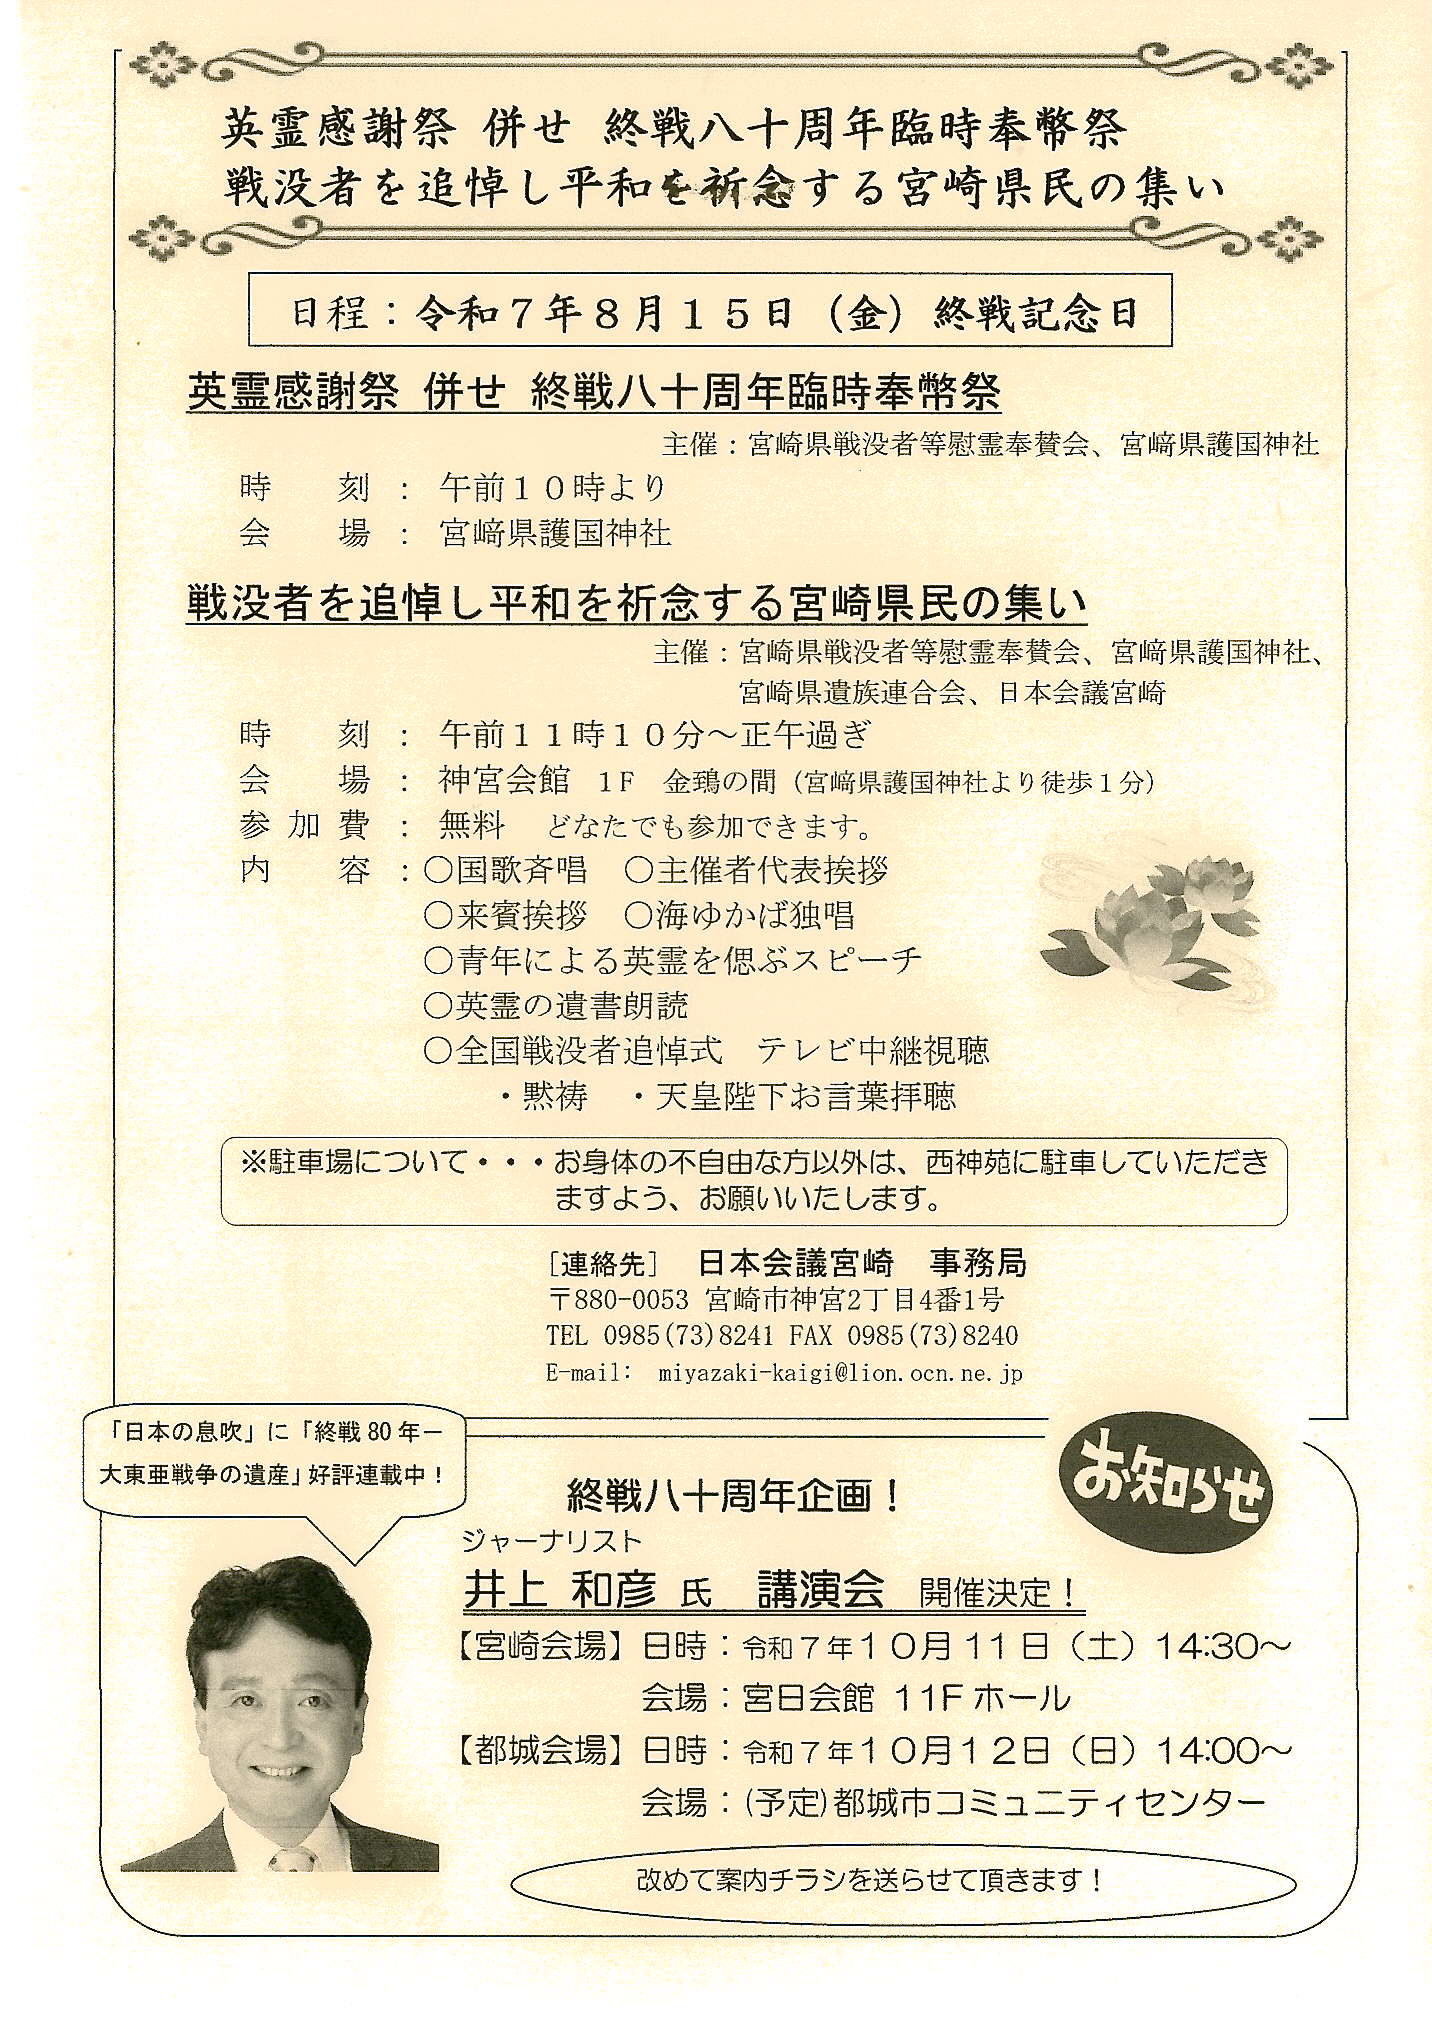 英霊感謝祭 併せ 終戦八十周年臨時奉幣祭
戦没者を追悼し平和を祈念する宮崎県民の集い
日程：令和７年８月１５日（金）終戦記念日
英霊感謝祭 併せ 終戦八十周年臨時奉幣祭
主催：宮崎県戦没者等慰霊奉賛会、宮﨑県護国神社
時　刻：午前１０時より
会　場：宮﨑県護国神社
戦没者を追悼し平和を祈念する宮崎県民の集い
主催：宮崎県戦没者等慰霊奉賛会、宮﨑県護国神社、
宮崎県遺族連合会、日本会議宮崎
時　刻：午前１１時１０分～正午過ぎ
会　場：神宮会館　１F　金鵄の間（宮﨑県護国神社より徒歩１分）
参加費：無料　どなたでも参加できます。
内　容：〇国歌斉唱　〇主催者代表挨拶
〇来賓挨拶　〇海ゆかば独唱
〇青年による英霊を偲ぶスピーチ
〇英霊の遺書朗読
〇全国戦没者追悼式　テレビ中継視聴
・黙祷　・天皇陛下お言葉拝聴
※駐車場について・・・お身体の不自由な方以外は、西神苑に駐車していただき
ますよう、お願いいたします。
［連絡先］　日本会議宮崎　事務局
〒880-0053 宮崎市神宮2丁目4番1号
TEL 0985(73)8241 FAX 0985(73)8240
E-mail: miyazaki-kaigi@lion.ocn.ne.jp
「日本の息吹」に「終戦80年ー
大東亜戦争の遺産」好評連載中！
お知らせ
終戦八十周年企画！
ジャーナリスト
井上 和彦 氏　講演会　開催決定！
【宮崎会場】日時：令和７年１０月１１日（土）14:30～
会場：宮日会館 11F ホール
【都城会場】日時：令和７年１０月１２日（日）14:00～
会場：(予定)都城市コミュニティセンター
改めて案内チラシを送らせて頂きます！